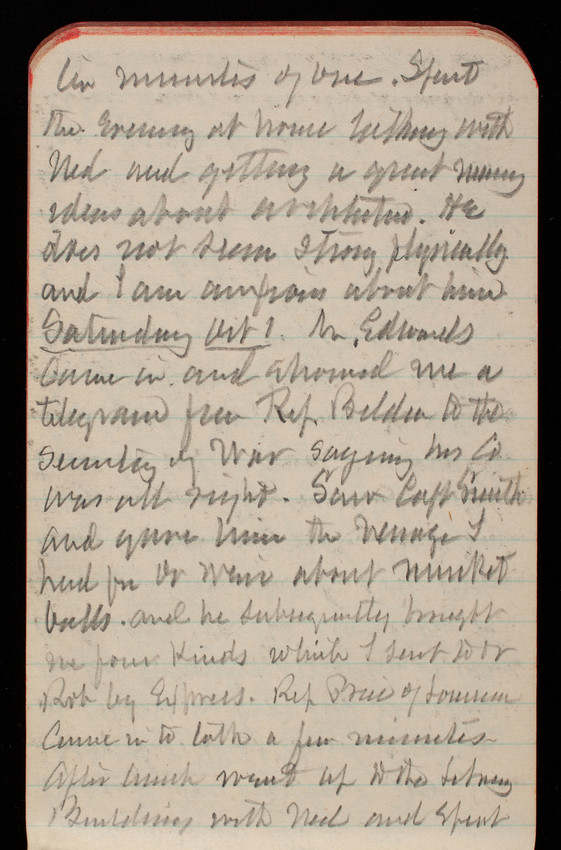 ten minutes of one. Spent
the evening at home talking with
Ned and getting a great many
ideas about architecture. He
does not seem strong physically
and I am anxious about him
Saturday Oct 1. Mr. Edwards
Came in and showed me a
telegram from Rep Belden to the
Secretary of War saying his Co
was all right. Saw Capt Smith
and gave him the message I
had for Dr Weir about musket
balls. and he subsequently brought
me four kinds which I sent to Dr
Rob by Express. Rep Price of Louisiana
Came in to talk a few minutes
After lunch went up to the Library
Building with Ned and spent